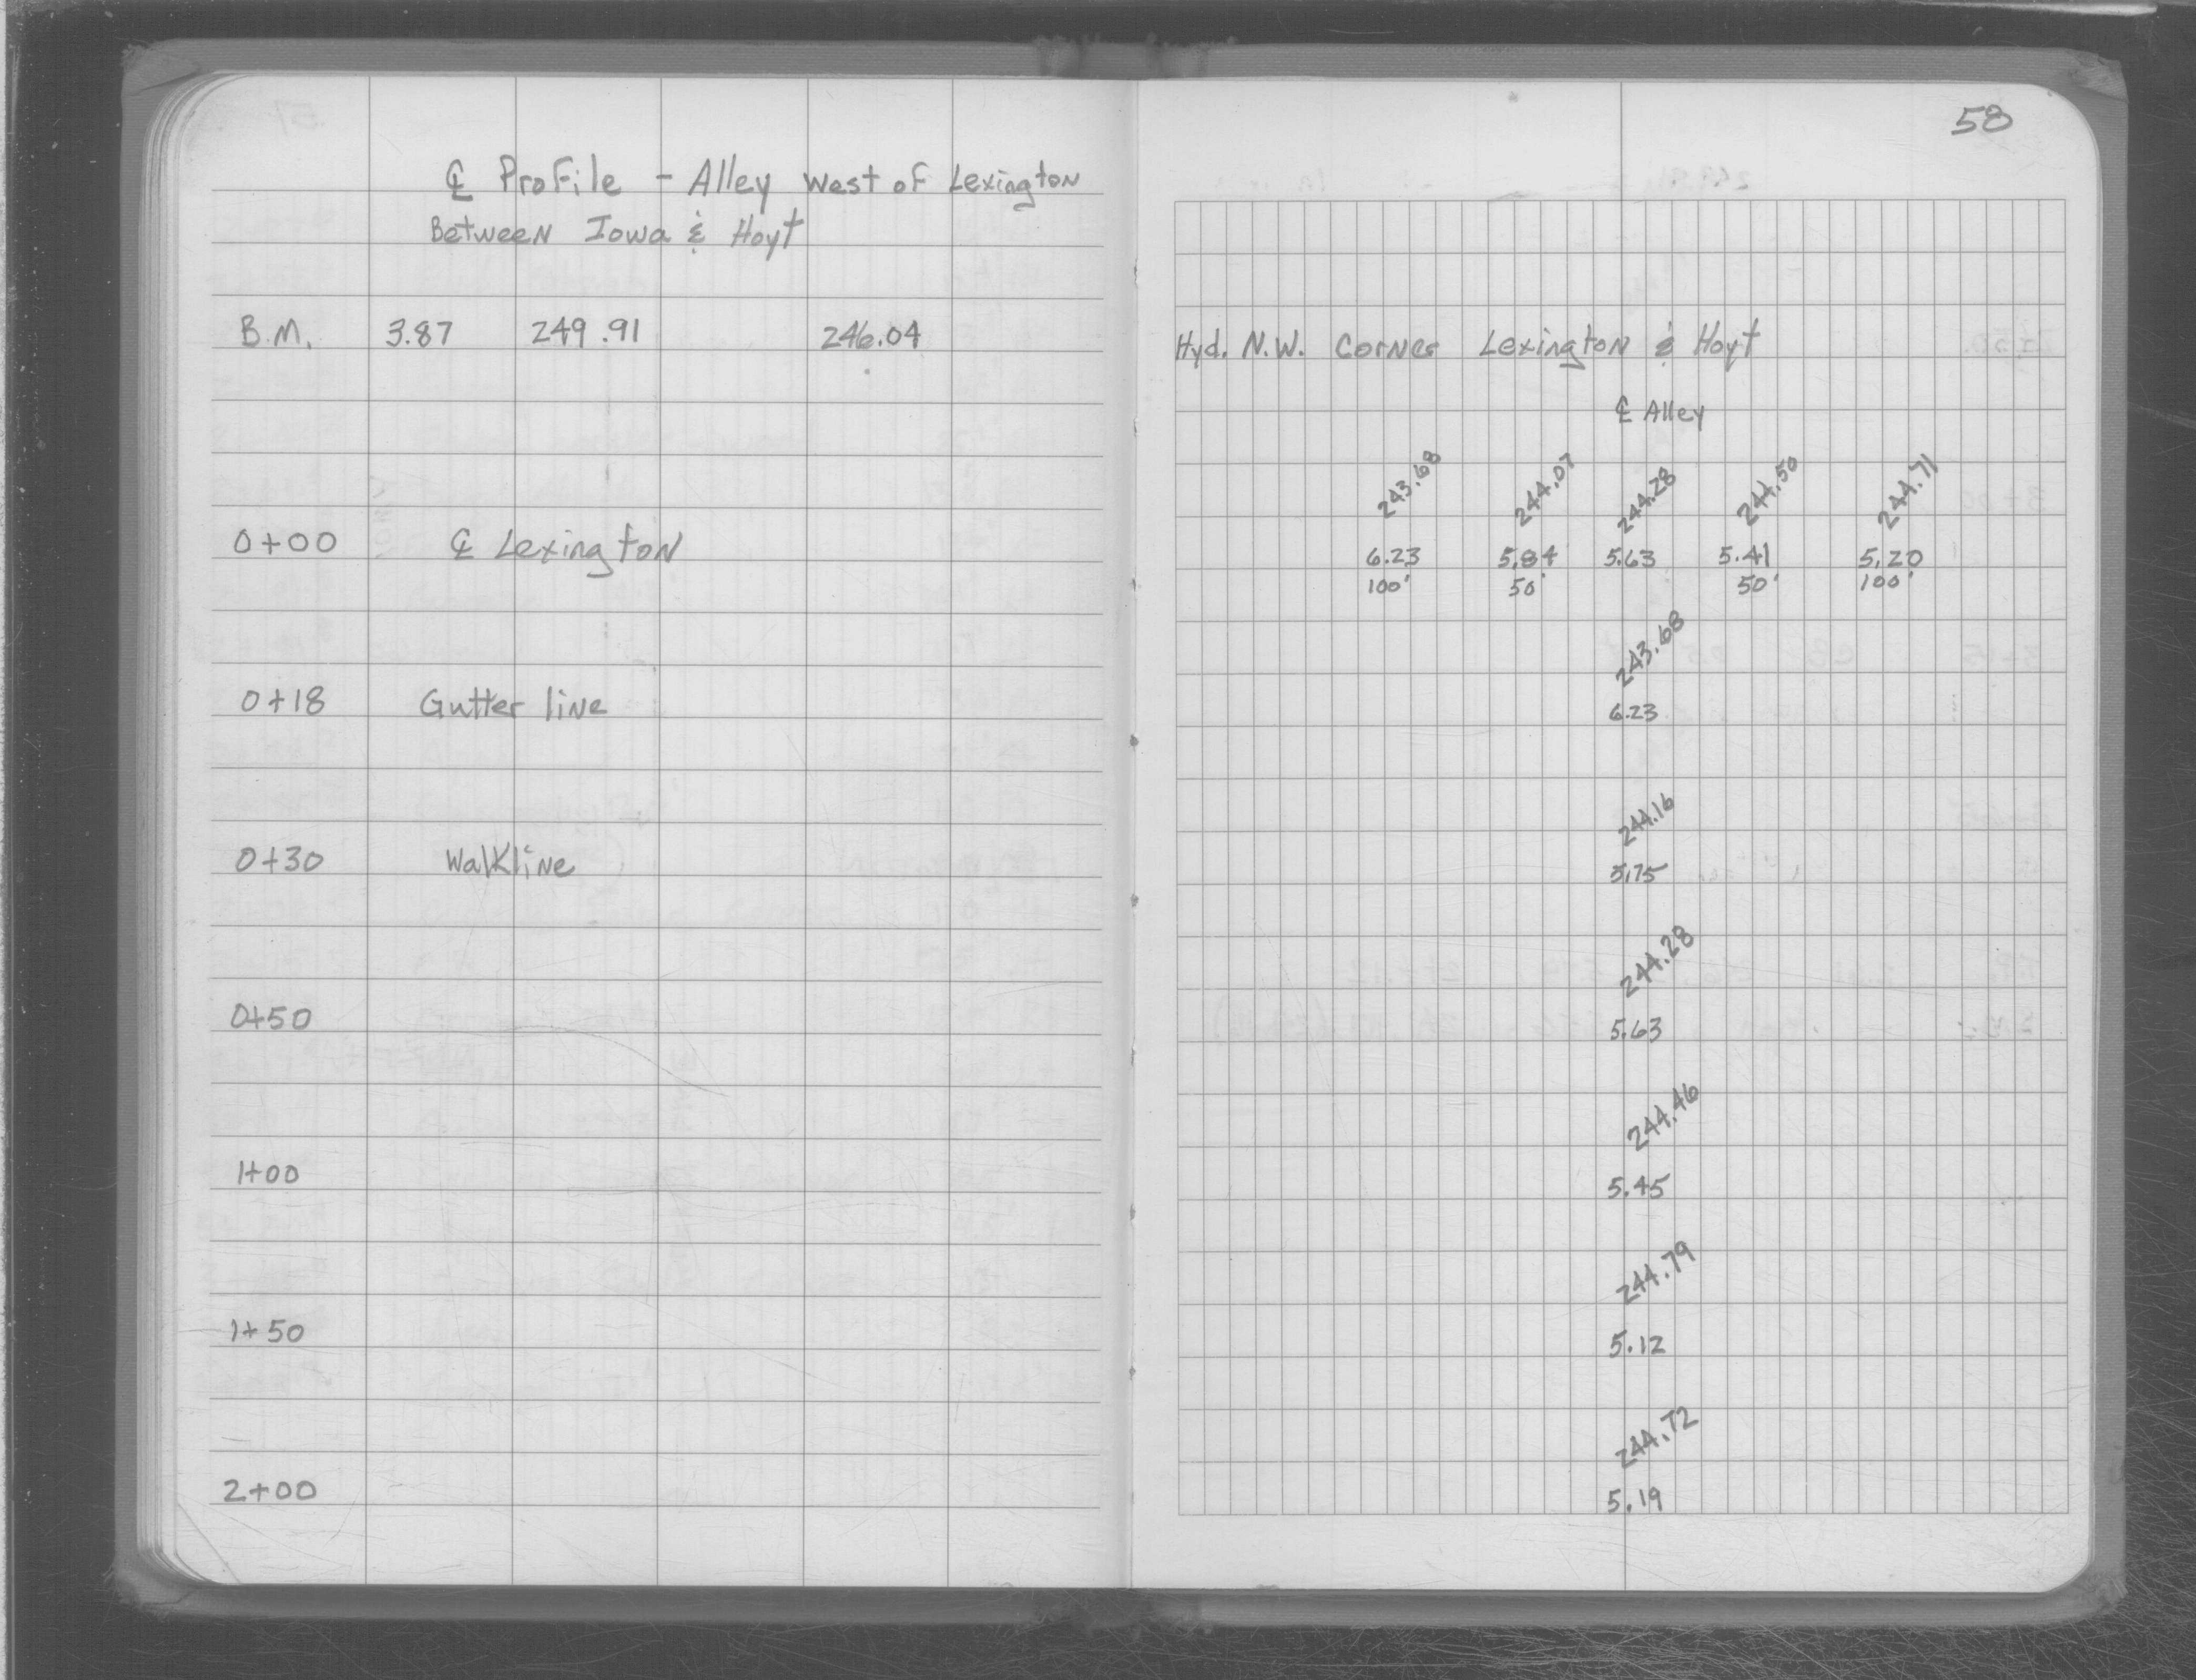 58
℄ Profile - Alley West of Lexington
Between Iowa & Hoyt
B.M. 3.87 249.91 246.04 Hyd. N.W. Corner Lexington & Hoyt
℄ Alley
243.68 244.07 244.28 244.50 244.71
0+00 ℄ Lexington 6.23 5.84 5.63 5.41 5.20
100' 50' 50' 100'
243.68
0+18 Gutter line 6.23
244.16
0+30 Walkline 5.75
244.28
0+50 5.63
244.46
1+00 5.45
244.79
1+50 5.12
244.72
2+00 5.19